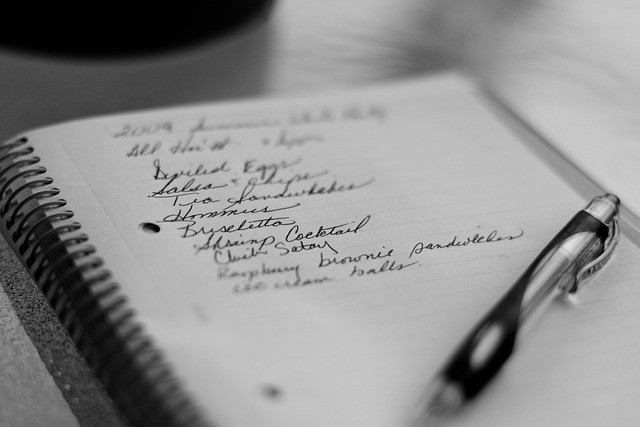 2009 Summer White Party
All Hors d'
Deviled Eggs
Salsa & Chips
Tea Sandwhiches
Hommus
Bruschetta
Shrimp Cocktail
Chicken Satay
Raspberry brownie sandwiches
ice cream balls.